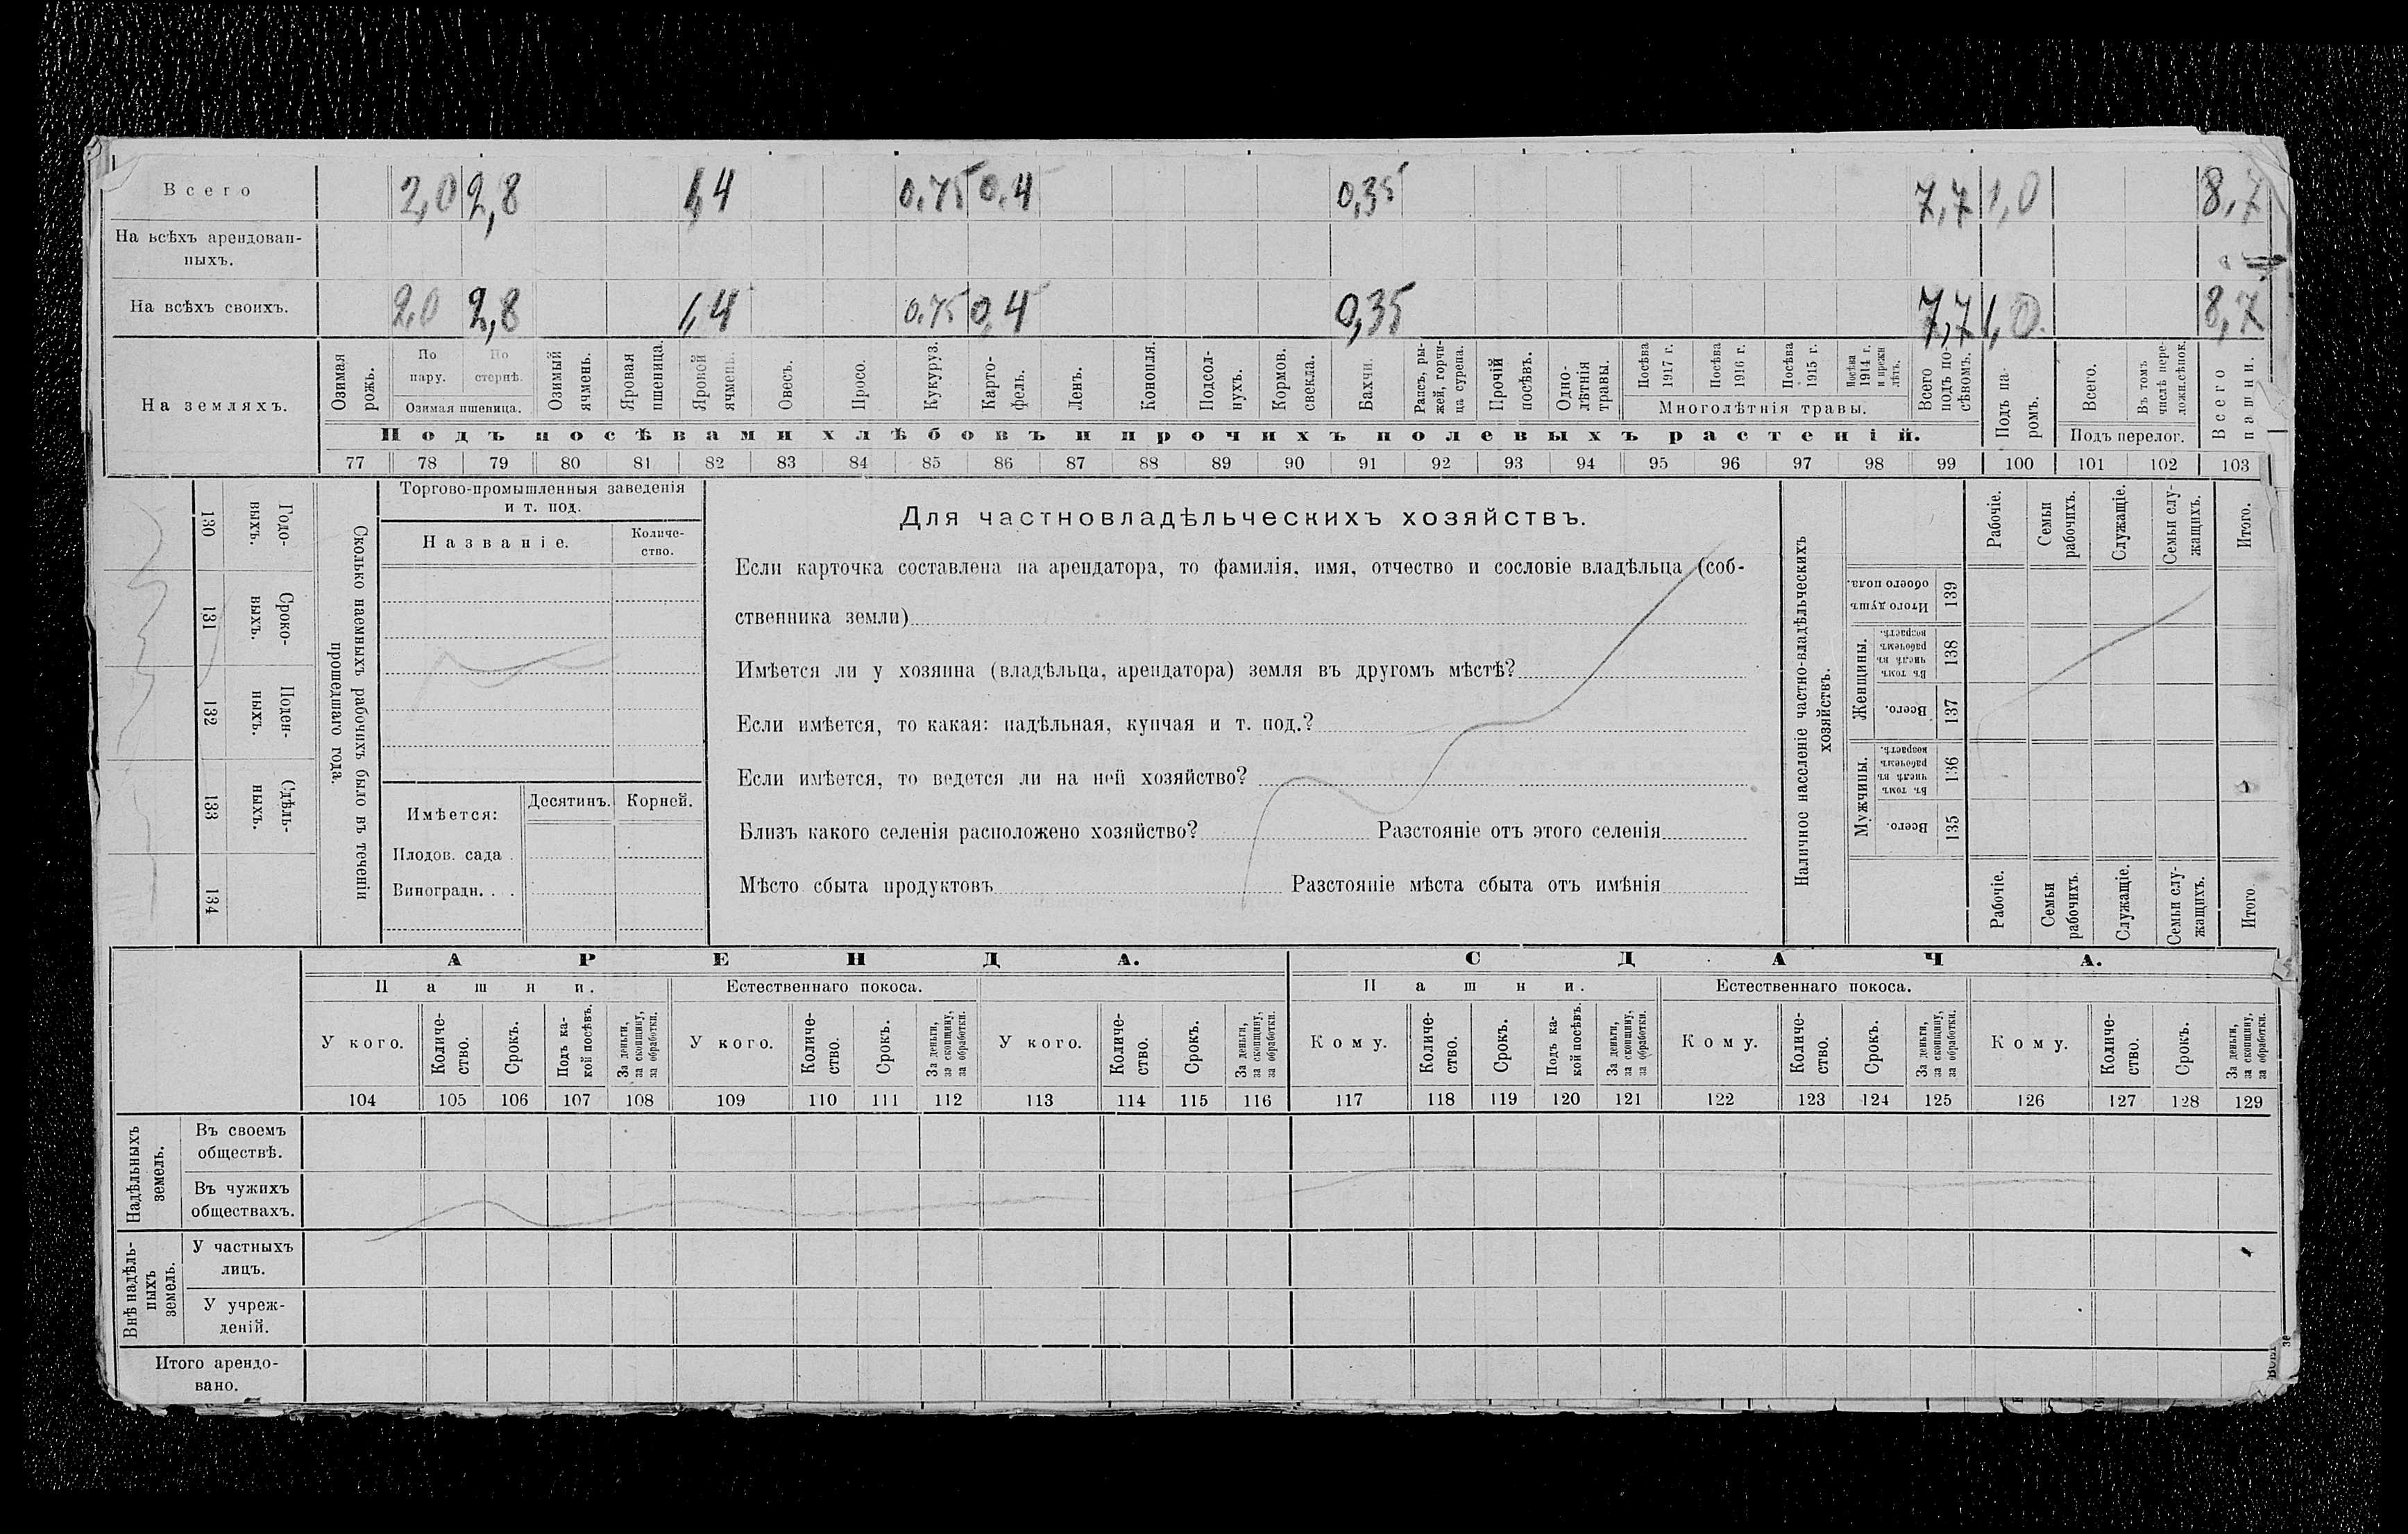 Всего 2,0 2,8 1,4 0,75 0,4 0,35 7,7 1,0 8,7
На всѣхъ арендован-
ныхъ.
На всѣхъ своихъ. 2,0 2,8 1,4 0,75 0,4 0,35 7,7 1,0 8,7
На земляхъ.
Озимая рожь.
По пару.
По стернѣ.
Озимая пшеница.
Озимый ячмень.
Яровая пшеница.
Яровой ячмень.
Овесъ.
Просо.
Кукуруз.
Карто-
фель.
Ленъ.
Конопля.
Подсол-
нухъ.
Кормов. свекла.
Бахчи.
Рапсъ, ры-
жей, горчи-
ца сурепа.
Прочій посѣвъ.
Одно-
лѣтнія травы.
Посѣва 1917 г.
Посѣва 1916 г.
Посѣва 1915 г.
Посѣва 1914 г. и прежн лѣтъ.
Многолѣтнія травы.
Всего подъ по-
сѣвомъ.
Подъ па-
ромъ.
Всего.
Въ томъ числѣ пере-
ложн.сѣнок.
Подъ перелог.
Всего пашни.
Подъ посѣвами хлѣбовъ и прочихъ полевыхъ растеній.
77 78 79 80 81 82 83 84 85 86 87 88 89 90 91 92 93 94 95 96 97 98 99 100 101 102 103
130 Годо-
выхъ.
131 Сроко-
выхъ.
132 Поден-
ныхъ.
133 Сдѣль-
ныхъ.
134
Сколько наемныхъ рабочихъ было въ теченіи
прошедшаго года.
Торгово-промышленныя заведенія
и т. под.
Названіе.
Количе-
ство.
Имѣется:
Десятинъ.
Корней.
Плодов. сада .
Виноградн. . .
Для частновладѣльческихъ хозяйствъ.
Если карточка составлена на арендатора, то фамилія, имя, отчество и сословіе владѣльца (соб-
ственника земли)
Имѣется ли у хозяина (владѣльца, арендатора) земля въ другомъ мѣстѣ?
Если имѣется, то какая: надѣльная, купчая и т. под.?
Если имѣется, то ведется ли на ней хозяйство?
Близъ какого селенія расположено хозяйство? Разстояніе отъ этого селенія
Мѣсто сбыта продуктовъ Разстояніе мѣста сбыта отъ имѣнія
Наличное населеніе частно-владѣльческихъ
хозяйствъ.
Рабочіе.
Семьи рабочихъ.
Служащіе.
Семьи слу-
жащихъ.
Итого.
Итого душъ обоего пола. 139
Женщины.
Въ томъ числѣ въ рабочемъ возрастѣ. 138
Всего. 137
Мужчины.
Въ томъ числѣ въ рабочемъ возрастѣ. 136
Всего. 135
Рабочіе.
Семьи рабочихъ.
Служащіе.
Семьи слу-
жащихъ.
Итого
АРЕНДА.
СДАЧА.
Пашни.
Естественнаго покоса.
Пашни.
Естественнаго покоса.
У кого.
Количе-
ство.
Срокъ.
Подъ ка-
кой посѣвъ.
За деньги,
за скопщину,
за обработки.
У кого.
Количе-
ство.
Срокъ.
За деньги,
за скопщину,
за обработки.
У кого.
Количе-
ство.
Срокъ.
За деньги,
за скопщину,
за обработки.
Кому.
Количе-
ство.
Срокъ.
Подъ ка-
кой посѣвъ.
За деньги,
за скопщину,
за обработки.
Кому.
Количе-
ство.
Срокъ.
За деньги,
за скопщину,
за обработки.
Кому.
Количе-
ство.
Срокъ.
За деньги,
за скопщину,
за обработки.
104 105 106 107 108 109 110 111 112 113 114 115 116 117 118 119 120 121 122 123 124 125 126 127 128 129
Надѣльныхъ
земель.
Въ своемъ
обществѣ.
Въ чужихъ
обществахъ.
Внѣ надѣль-
ныхъ
земель.
У частныхъ
лицъ.
У учреж-
деній.
Итого арендо-
вано.